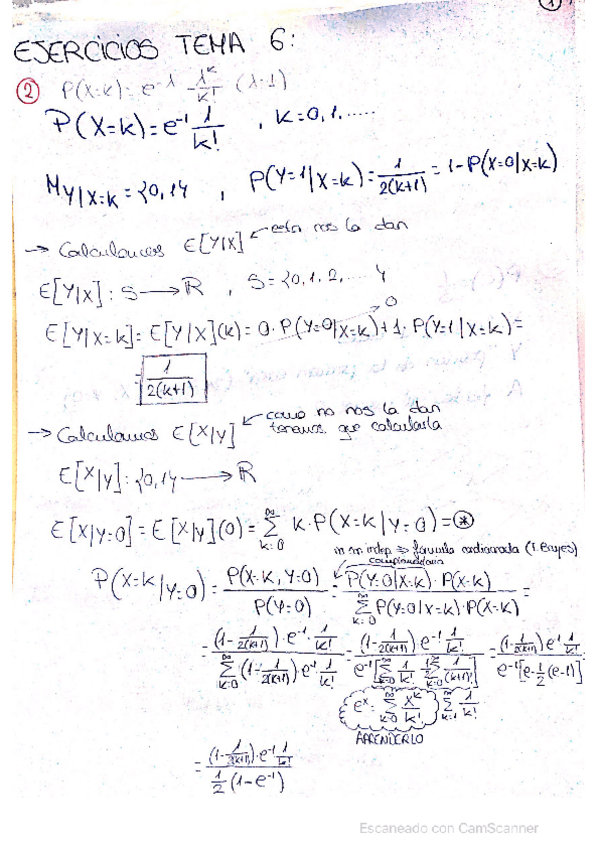 1
EJERCICIOS TEMA 6:
② P(X=k) = e^-λ λ^k/k! (λ=1)
P(X=k) = e^-1 1/k! , k=0,1,.....
M Y|X=k = {0,1} , P(Y=1|X=k) = 1/2(k+1) = 1-P(Y=0|X=k)
→ Calculamos E[Y|X] ← esta nos la dan
E[Y|X]: S → R , S={0,1,2,... }
E[Y|X=k] = E[Y|X](k) = 0·P(Y=0|X=k)+1·P(Y=1|X=k) =
0
= 1/2(k+1)
→ Calculamos E[X|Y] ← como no nos la dan
tenemos que calcularla
E[X|Y]: {0,1} → R
E[X|Y=0] = E[X|Y](0) = ∞ Σ k=0 k·P(X=k|Y=0) = ⊛
indep ⇒ fórmula condicionada (T. Bayes)
P(X=k|Y=0) = P(X=k, Y=0)/P(Y=0) = P(Y=0|X=k)·P(X=k)/∞ Σ k=0 P(Y=0|X=k)·P(X=k) =
= (1-1/2(k+1))·e^-1·1/k! / ∞ Σ k=0 (1-1/2(k+1))·e^-1 1/k! = (1-1/2(k+1)) e^-1 1/k! / e^-1[∞ Σ k=0 1/k! - 1/2 ∞ Σ k=0 1/(k+1)!] = (1-1/2(k+1)) e^1 1/k! / e^-1[e-1/2(e-1)]
e^x = ∞ Σ k=0 x^k/k! ∞ Σ k=1 1/k!
APRENDERLO
= (1-1/2(k+1))·e^-1 1/k! / 1/2(1-e^-1)
Escaneado con CamScanner